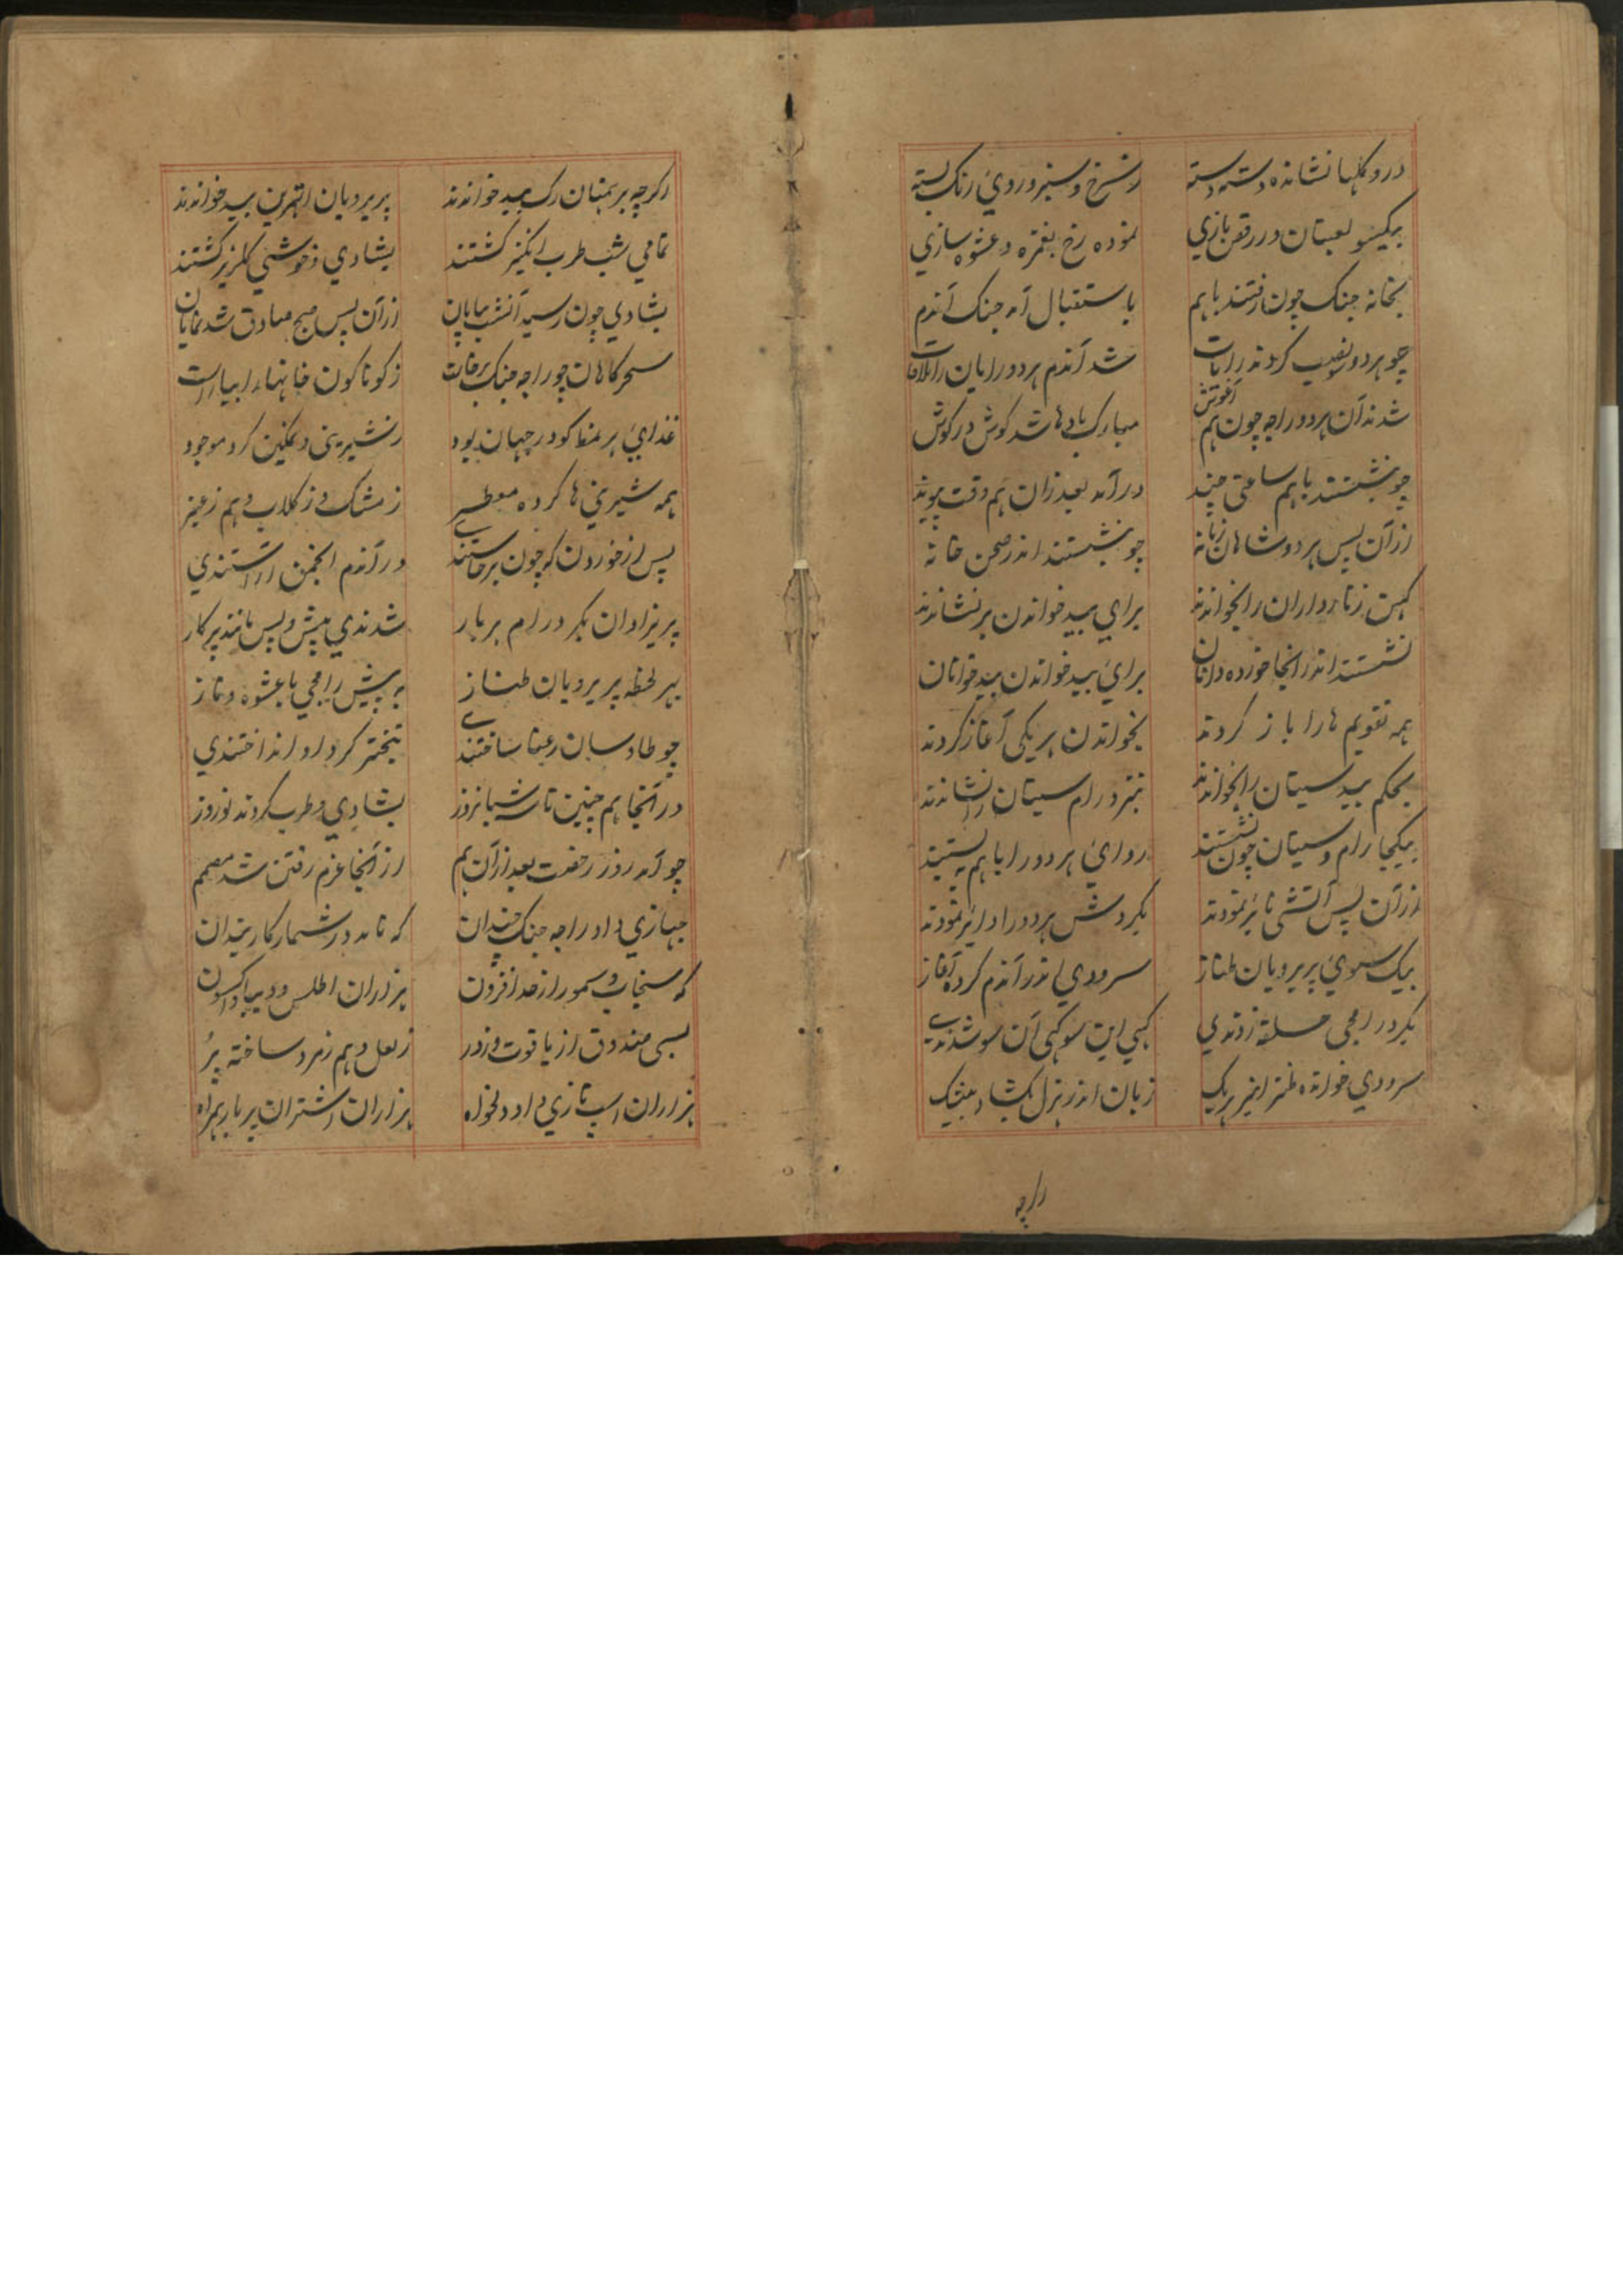 درو گلها نشانده دسته دسته ز سرخ و سبز و روی رنگ بسته
بیکسو لعبتان در رقص بازی نموده رخ بغمزه و عشوه سازی
بخانه جنک چون رفتند باهم باستقبال آمد جنک آندم
چو هر دو نصیب کردند رایات شد آندم هر دو رایان را ملاقات
شدند آن هر دو راجه چون هم آغوش مبارک بادها شد گوش در گوش
چو بنشستند باهم ساعتی چند درآمد بعد زان هم وقت پیوند
ازآن پس هر دو شاهان زمانه چو بنشستند اندر صحن خانه
کهن زنارداران را بخواندند برای بید خواندن برنشاندند
نشستند اندر انجا خورده دانان برای بید خواندن بیدخوانان
همه تقویم ها را باز کردند بخواندن هر یکی آغاز کردند
بحکم بید سیتان را بخواندند بنزد رام سیتان را نشاندند
بیکجا رام و سیتان چون نشستند ردای هر دو را باهم ببستند
ازآن پس آتشی بائر نمودند بکردش هر دو را دایر نمودند
بیک سوی پریرویان طناز سرودی اندر آندم کرده آغاز
بکرد رامجی حلقه زدندی کهی این سو کهی آن سو شدندی
سرودی خوانده طنز امیز هریک زبان اندر هزل بکشاد بیشک
راجه
اکرچه برهمنان رک بید خواندند پریرویان اتهربن بید خواندند
تمامی شب طرب انکیز کشتند بشادی و خوشی کلریز کشتند
بشادی چون رسید آنشب بپایان ازآن پس صبح صادق شد نمایان
سحرکاهان چو راجه جنک برخاست زکوناکون خانها را بیاراست
غذای هر نمط کو در جهان بود ز شیرینی و نمکین کرد موجود
همه شیرینی ها کرده معطر ز مشک و ز کلاب و هم ز عنبر
پس از خوردن که چون برخاستندی در آندم انجمن آراستندی
پریزادان بکرد رام هر بار شدندی پیش و پس مانند پرکار
بهر لحظه پریرویان طناز به پیش رامجی با عشوه و ناز
چو طاوسان رعنا ساختندی تبختر کرد او انداختندی
در آنجا هم چنین تا سه شبانروز بشادی و طرب کردند نوروز
چو آمد روز رخصت بعد ازآن هم از آنجا عزم رفتن شد مصمم
جهازی داد راجه جنک چندان که ناید در شمار کار بندان
که سنجاب و سمور از حد افزون هزاران اطلس و دیبا و اکسون
بسی صندوق از یاقوت و زدر ز لعل و هم زمرد ساخته پر
هزاران اسپ تازی داد دلخواه هزاران اشتران پربار همراه